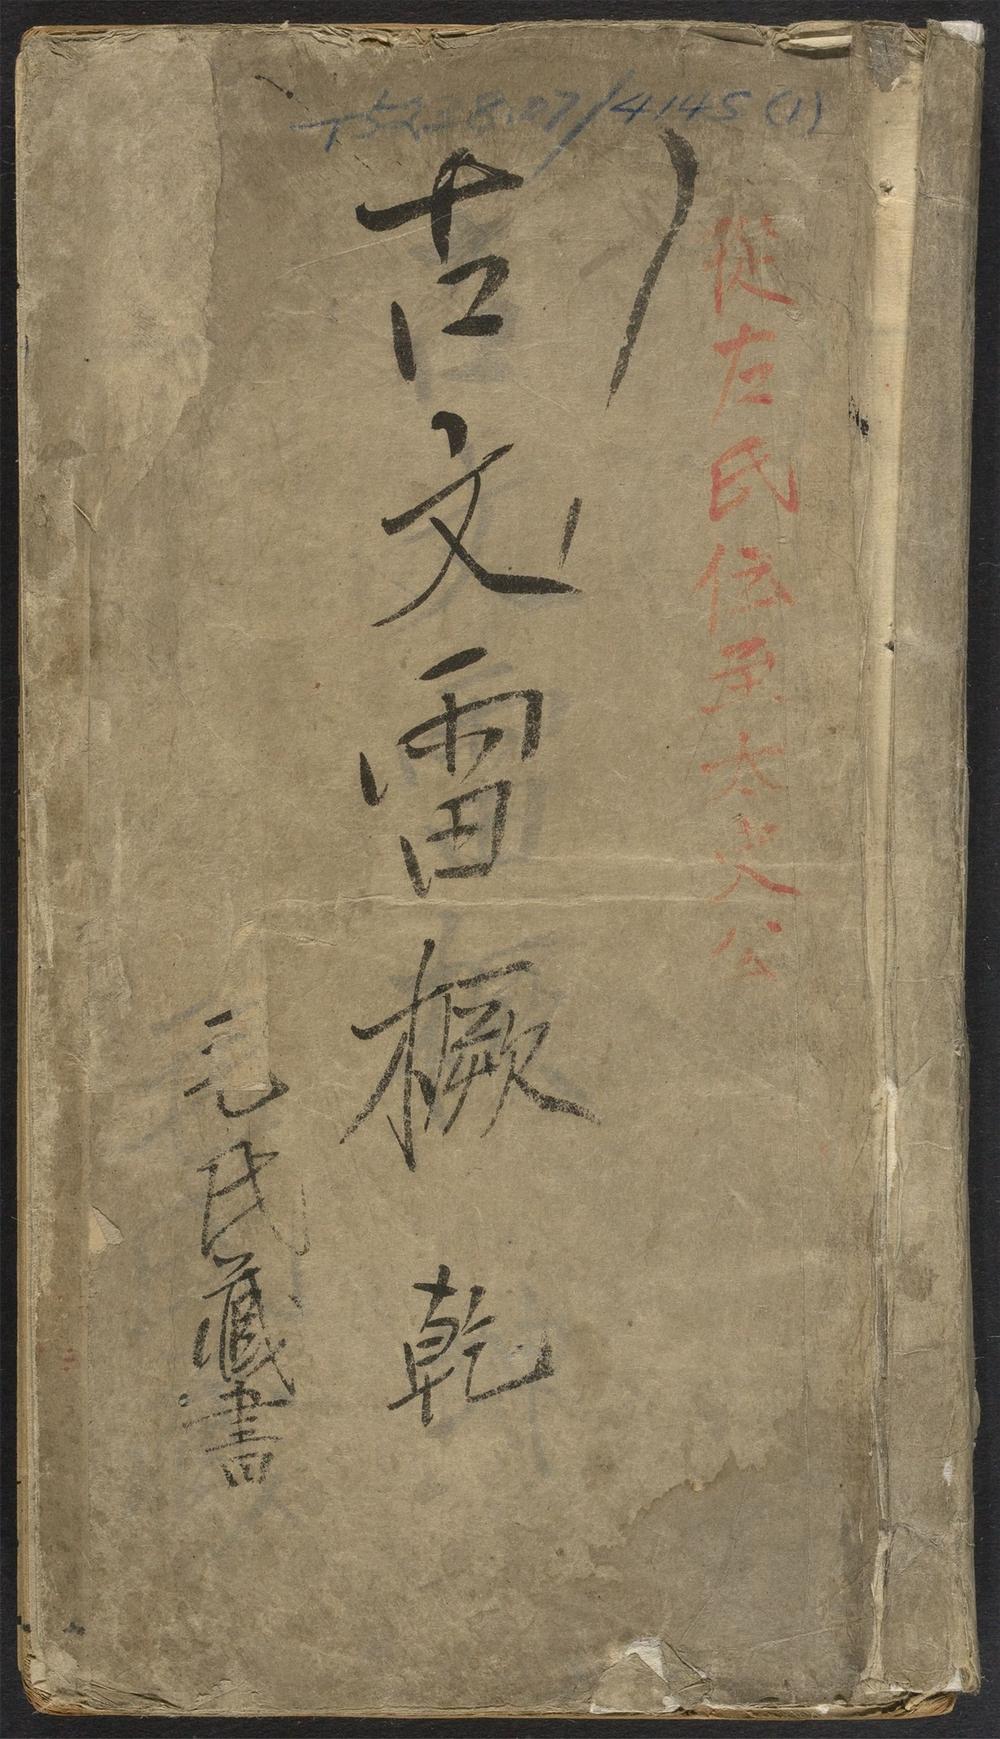 5238.07/4145(1)
從左氏傳至太史公
古文雷橛 乾
元氏藏書